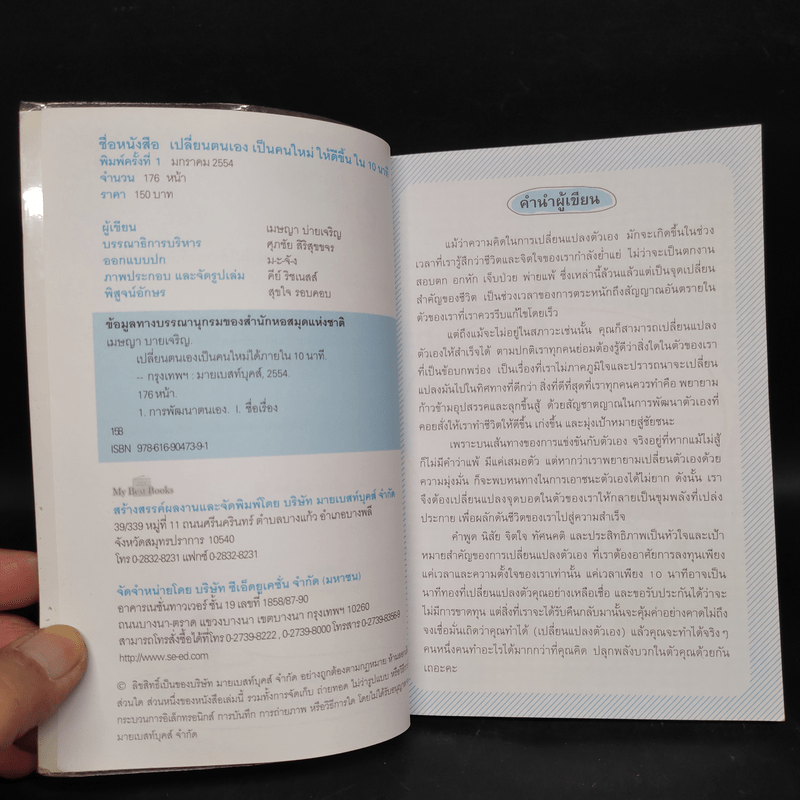 ชื่อหนังสือ เปลี่ยนตนเอง เป็นคนใหม่ ให้ดีขึ้น ใน 10 นาที
พิมพ์ครั้งที่ 1 มกราคม 2554
จำนวน 176 หน้า
ราคา 150 บาท
ผู้เขียน เมษญา บ่ายเจริญ
บรรณาธิการบริหาร ศุภชัย สิริสุขขจร
ออกแบบปก ม-ะ-จ๋-ง
ภาพประกอบ และจัดรูปเล่ม คีย์ ริชเนสส์
พิสูจน์อักษร สุขใจ รอบคอบ
ข้อมูลทางบรรณานุกรมของสำนักหอสมุดแห่งชาติ
เมษญา บ่ายเจริญ.
เปลี่ยนตนเองเป็นคนใหม่ได้ภายใน 10 นาที.
-- กรุงเทพฯ : มายเบสท์บุคส์, 2554.
176 หน้า.
1. การพัฒนาตนเอง. I. ชื่อเรื่อง
158
ISBN 978-616-90473-9-1
My Best Books
สร้างสรรค์ผลงานและจัดพิมพ์โดย บริษัท มายเบสท์บุคส์ จำกัด
39/339 หมู่ที่ 11 ถนนศรีนครินทร์ ตำบลบางแก้ว อำเภอบางพลี
จังหวัดสมุทรปราการ 10540
โทร 0-2832-8231 แฟกซ์ 0-2832-8231
จัดจำหน่ายโดย บริษัท ซีเอ็ดยูเคชั่น จำกัด (มหาชน)
อาคารเนชั่นทาวเวอร์ ชั้น 19 เลขที่ 1858/87-90
ถนนบางนา-ตราด แขวงบางนา เขตบางนา กรุงเทพฯ 10260
สามารถโทรสั่งซื้อได้ที่โทร 0-2739-8222 , 0-2739-8000 โทรสาร 0-2739-8356-9
http://www.se-ed.com
© ลิขสิทธิ์เป็นของบริษัท มายเบสท์บุคส์ จำกัด อย่างถูกต้องตามกฎหมาย ห้าม
ส่วนใด ส่วนหนึ่งของหนังสือเล่มนี้ รวมทั้งการจัดเก็บ ถ่ายทอด ไม่ว่ารูปแบบ
กระบวนการอิเล็กทรอนิกส์ การบันทึก การถ่ายภาพ หรือวิธีการใด โดยไม่ได้รับอนุญาต
มายเบสท์บุคส์ จำกัด
คำนำผู้เขียน
แม้ว่าความคิดในการเปลี่ยนแปลงตัวเอง มักจะเกิดขึ้นในช่วง
เวลาที่เรารู้สึกว่าชีวิตและจิตใจของเรากำลังย่ำแย่ ไม่ว่าจะเป็นตกงาน
สอบตก อกหัก เจ็บป่วย พ่ายแพ้ ซึ่งเหล่านี้ล้วนแล้วแต่เป็นจุดเปลี่ยน
สำคัญของชีวิต เป็นช่วงเวลาของการตระหนักถึงสัญญาณอันตรายใน
ตัวของเราที่เราควรรีบแก้ไขโดยเร็ว
แต่ถึงแม้จะไม่อยู่ในสภาวะเช่นนั้น คุณก็สามารถเปลี่ยนแปลง
ตัวเองให้สำเร็จได้ ตามปกติเราทุกคนย่อมต้องรู้ดีว่าสิ่งใดในตัวของเรา
ที่เป็นข้อบกพร่อง เป็นเรื่องที่เราไม่ภาคภูมิใจและปรารถนาจะเปลี่ยน
แปลงมันไปในทิศทางที่ดีกว่า สิ่งที่ดีที่สุดที่เราทุกคนควรทำคือ พยายาม
ก้าวข้ามอุปสรรคและลุกขึ้นสู้ ด้วยสัญชาตญาณในการพัฒนาตัวเองที่
คอยสั่งให้เราทำชีวิตให้ดีขึ้น เก่งขึ้น และมุ่งเป้าหมายสู่ชัยชนะ
เพราะบนเส้นทางของการแข่งขันกับตัวเอง จริงอยู่ที่หากแม้ไม่สู้
ก็ไม่มีคำว่าแพ้ มีแค่เสมอตัว แต่หากว่าเราพยายามเปลี่ยนตัวเองด้วย
ความมุ่งมั่น ก็จะพบหนทางในการเอาชนะตัวเองได้ไม่ยาก ดังนั้น เรา
จึงต้องเปลี่ยนแปลงจุดบอดในตัวของเราให้กลายเป็นขุมพลังที่เปล่ง
ประกาย เพื่อผลักดันชีวิตของเราไปสู่ความสำเร็จ
คำพูด นิสัย จิตใจ ทัศนคติ และประสิทธิภาพเป็นหัวใจและเป้า
หมายสำคัญของการเปลี่ยนแปลงตัวเอง ที่เราต้องอาศัยการลงทุนเพียง
แค่เวลาและความตั้งใจของเราเท่านั้น แค่เวลาเพียง 10 นาทีอาจเป็น
นาทีทองที่เปลี่ยนแปลงตัวคุณอย่างเหลือเชื่อ และขอรับประกันได้ว่าจะ
ไม่มีการขาดทุน แต่สิ่งที่เราจะได้รับคืนกลับมานั้นจะคุ้มค่าอย่างคาดไม่ถึง
จงเชื่อมั่นเถิดว่าคุณทำได้ (เปลี่ยนแปลงตัวเอง) แล้วคุณจะทำได้จริงๆ
คนหนึ่งคนทำอะไรได้มากกว่าที่คุณคิด ปลุกพลังบวกในตัวคุณด้วยกัน
เถอะคะ